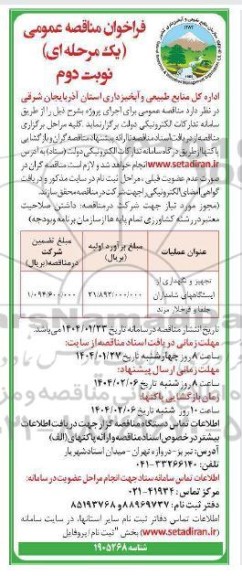 فراخوان مناقصه عمومی
(یک مرحله ای)
نوبت دوم
اداره کل منابع طبیعی و آبخیزداری استان آذربایجان شرقی
در نظر دارد مناقصه عمومی برای اجرای پروژه بشرح ذیل را از طریق
سامانه تدارکات الکترونیکی دولت برگزار نماید. کلیه مراحل برگزاری
مناقصه از دریافت اسناد مناقصه تا ارائه پیشنهاد مناقصه گران و بازگشایی
پاکتها از طریق درگاه سامانه تدارکات الکترونیکی دولت (ستاد) به آدرس
www.setadiran.ir انجام خواهد شد و لازم است مناقصه گران در
صورت عدم عضویت قبلی، مراحل ثبت نام در سایت مذکور و دریافت
گواهی امضای الکترونیکی را جهت شرکت در مناقصه محقق سازند.
(مجوز مورد نیاز جهت شرکت در مناقصه: داشتن صلاحیت
معتبر در رشته کشاورزی تمام پایه ها از سازمان برنامه و بودجه)
عنوان عملیات
مبلغ برآورد اولیه (ریال)
مبلغ تضمین شرکت در مناقصه (ریال)
تجهیز و نگهداری از ایستگاههای
مرند
۲۱/۸۹۲/۰۰۰/۰۰۰
۱/۰۹۴/۶۰۰/۰۰۰
تاریخ انتشار مناقصه در سامانه تاریخ ۱۴۰۴/۰۱/۲۳ می‌باشد.
مهلت زمانی دریافت اسناد مناقصه از سایت:
ساعت ۸ روز چهارشنبه تاریخ ۱۴۰۴/۰۱/۲۷
مهلت زمانی ارسال پیشنهاد:
ساعت ۸ روز شنبه تاریخ ۱۴۰۴/۰۲/۰۶
زمان بازگشایی پاکتها:
ساعت ۱۰ روز شنبه تاریخ ۱۴۰۴/۰۲/۰۶
اطلاعات تماس دستگاه مناقصه گزار جهت دریافت اطلاعات
بیشتر در خصوص اسناد مناقصه و ارائه پاکتهای (الف)
آدرس: تبریز - دروازه تهران - میدان استاد شهریار
تلفن: ۳۳۲۶۶۱۴۰-۰۴۱
اطلاعات تماس سامانه ستاد جهت انجام مراحل عضویت در سامانه:
مرکز تماس: ۴۱۹۳۴-۰۲۱
دفتر ثبت نام: ۸۸۹۶۹۷۳۷ و ۸۵۱۹۳۷۶۸
اطلاعات تماس دفاتر ثبت نام سایر استانها، در سایت سامانه
(www.setadiran.ir) بخش "ثبت نام / پروفایل
شناسه ۱۹۰۵۲۶۸